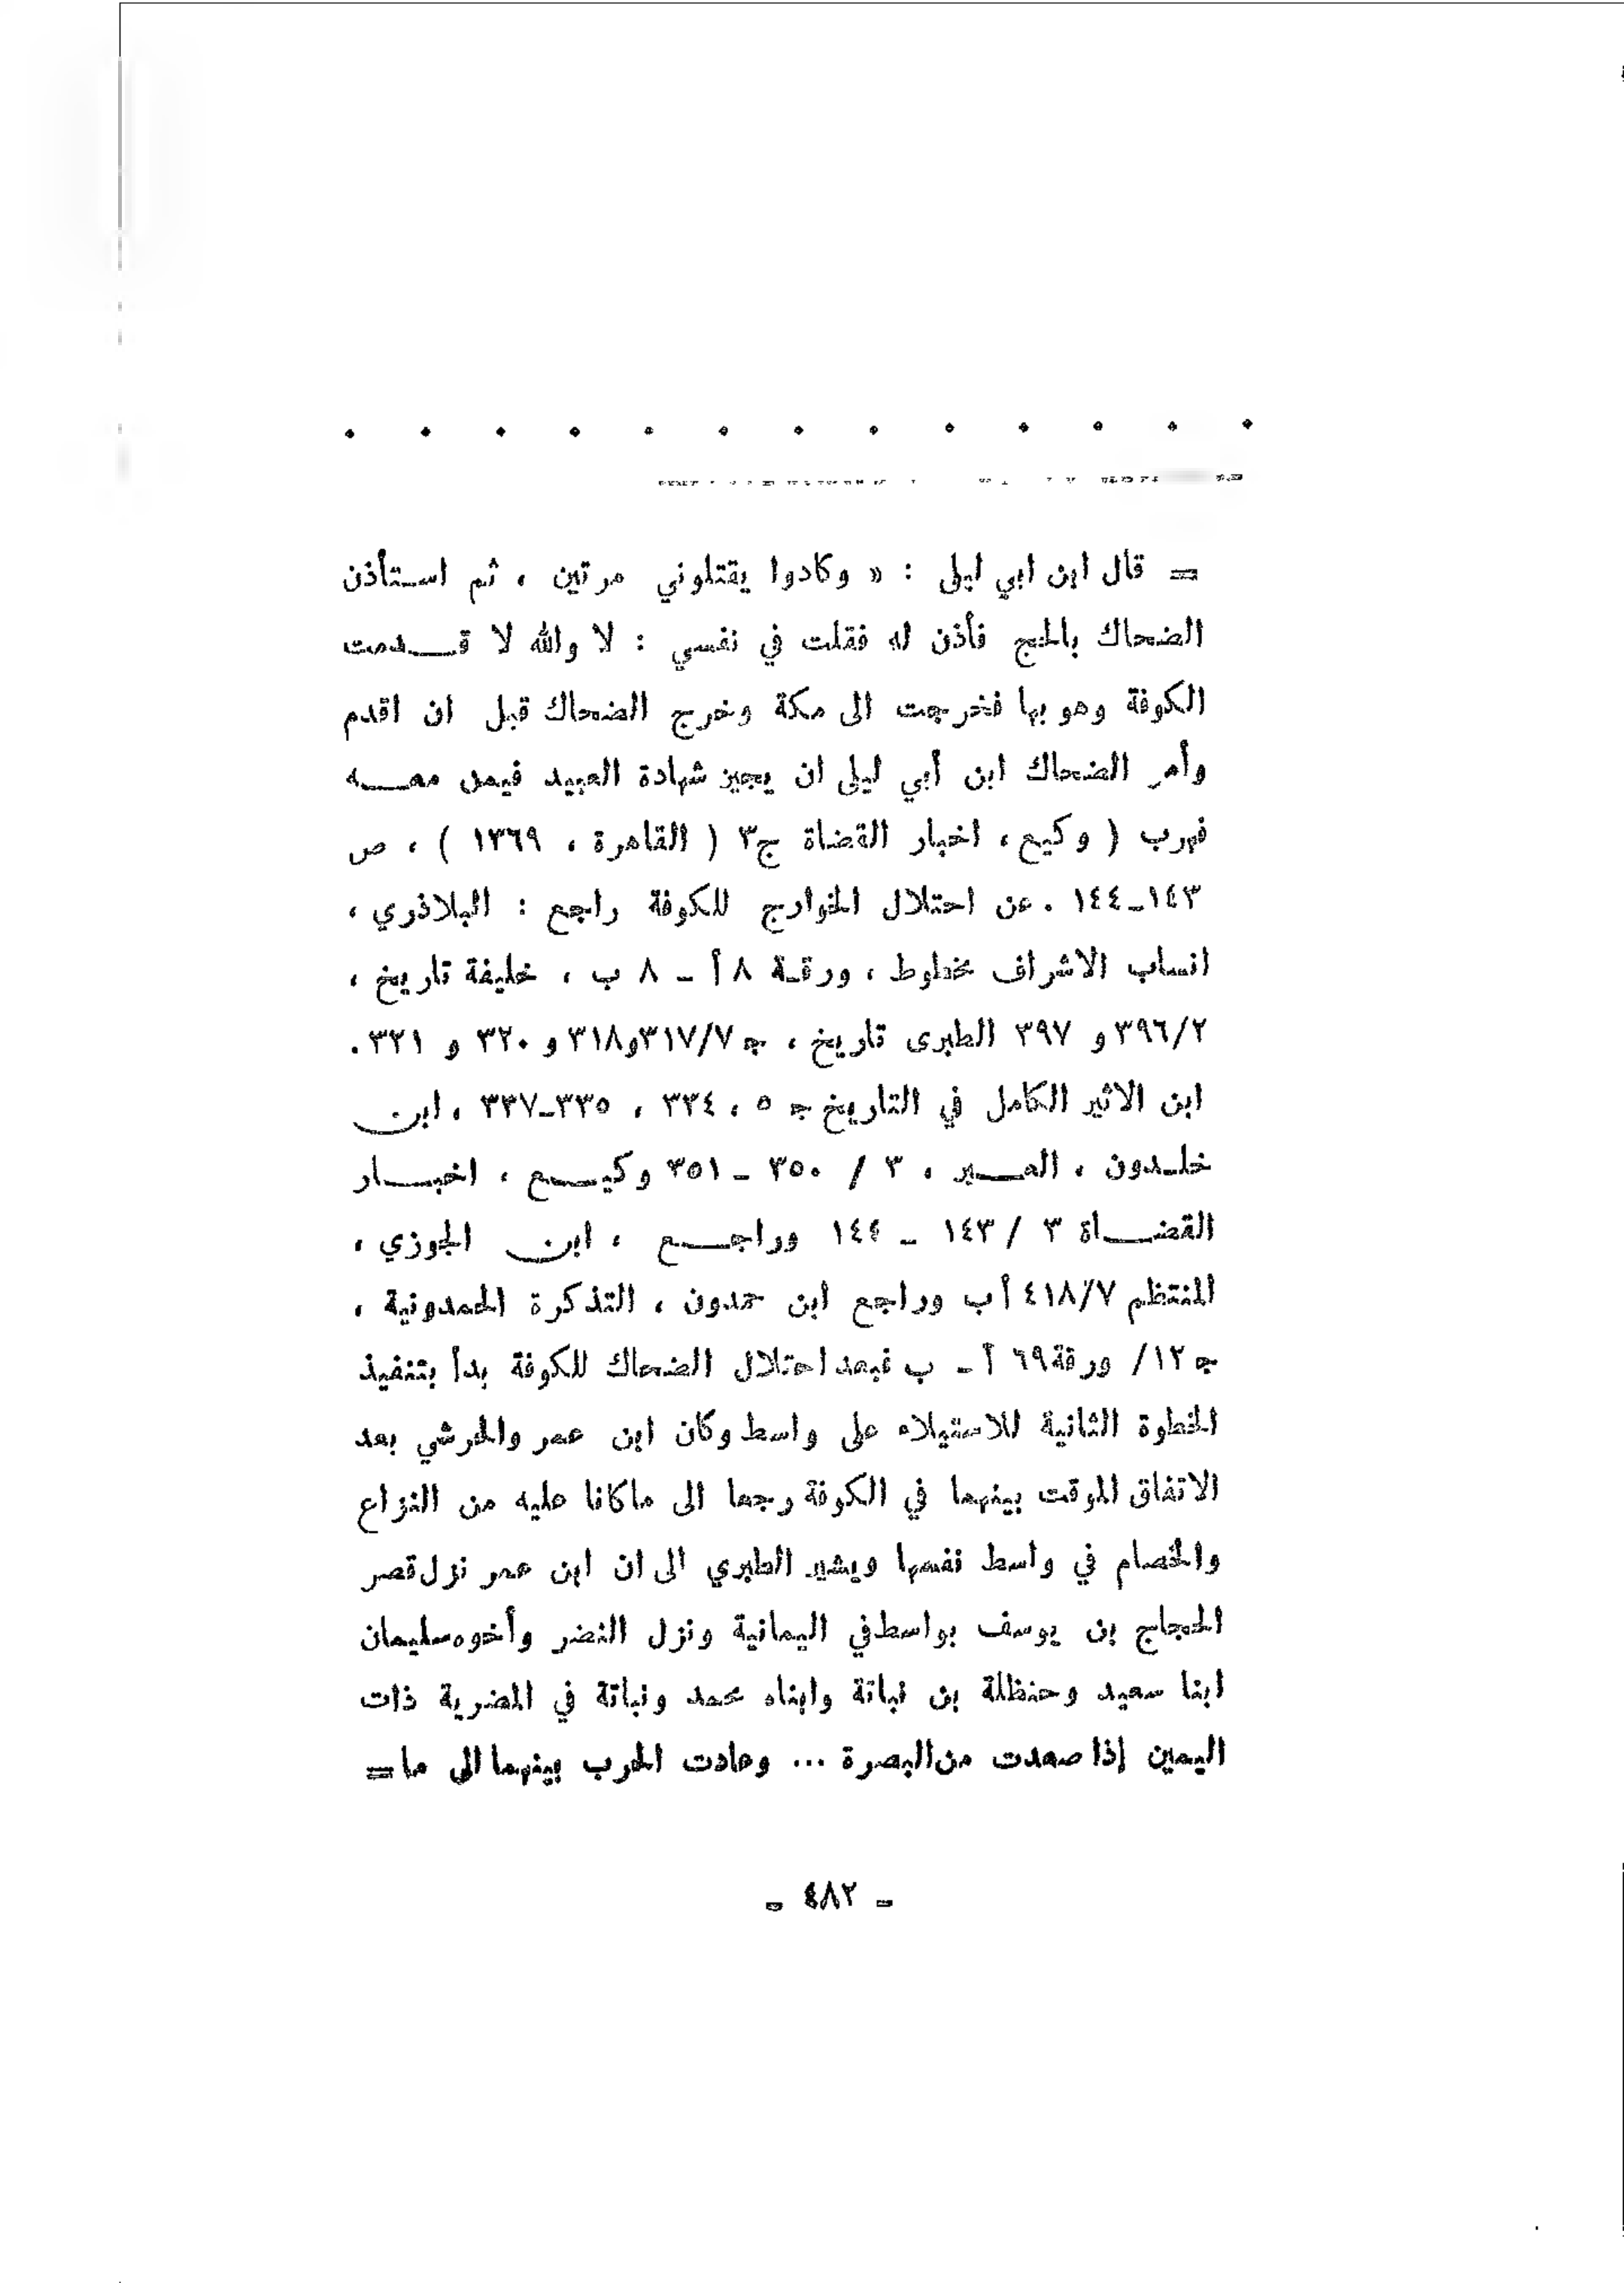 . . . . . . . . . . . . .
= قال ابن ابي ليلى : « وكادوا يقتلوني مرتين ، ثم استأذن
الضحاك بالحج فأذن له فقلت في نفسي : لا والله لا قدمت
الكوفة وهو بها فخرجت الى مكة وخرج الضحاك قبل ان اقدم
وأمر الضحاك ابن أبي ليلى ان يجيز شهادة العبيد فيمن معه
فهرب ( وكيع ، اخبار القضاة ج٣ ( القاهرة ، ١٣٦٩ ) ، ص
١٤٣ـ١٤٤ . عن احتلال الخوارج للكوفة راجع : البلاذري ،
انساب الاشراف مخطوط ، ورقة ٨ أ ـ ٨ ب ، خليفة تاريخ ،
٣٩٦/٢ و ٣٩٧ الطبرى تاريخ ، ج ٣١٧/٧و٣١٨ و ٣٢٠ و ٣٢١ .
ابن الاثير الكامل في التاريخ ج ٥ ، ٣٣٤ ، ٣٣٥ـ٣٣٧ ، ابن
خلدون ، العبر ، ٣ / ٣٥٠ ـ ٣٥١ وكيع ، اخبار
القضاة ٣ / ١٤٣ ـ ١٤٤ وراجع ، ابن الجوزي ،
المنتظم ٤١٨/٧ أب وراجع ابن حمدون ، التذكرة الحمدونية ،
ج ١٢/ ورقة ٦٩ أ ـ ب فبعد احتلال الضحاك للكوفة بدأ بتنفيذ
الخطوة الثانية للاستيلاء على واسط وكان ابن عمر والحرشي بعد
الاتفاق الموقت بينهما في الكوفة رجعا الى ماكانا عليه من النزاع
والخصام في واسط نفسها ويشير الطبري الى ان ابن عمر نزل قصر
الحجاج بن يوسف بواسط في اليمانية ونزل النضر وأخوه سليمان
ابنا سعيد وحنظلة بن نباتة وابناه محمد ونباتة في المضرية ذات
اليمين إذا صعدت من البصرة ... وعادت الحرب بينهما الى ما =
ـ ٤٨٢ ـ